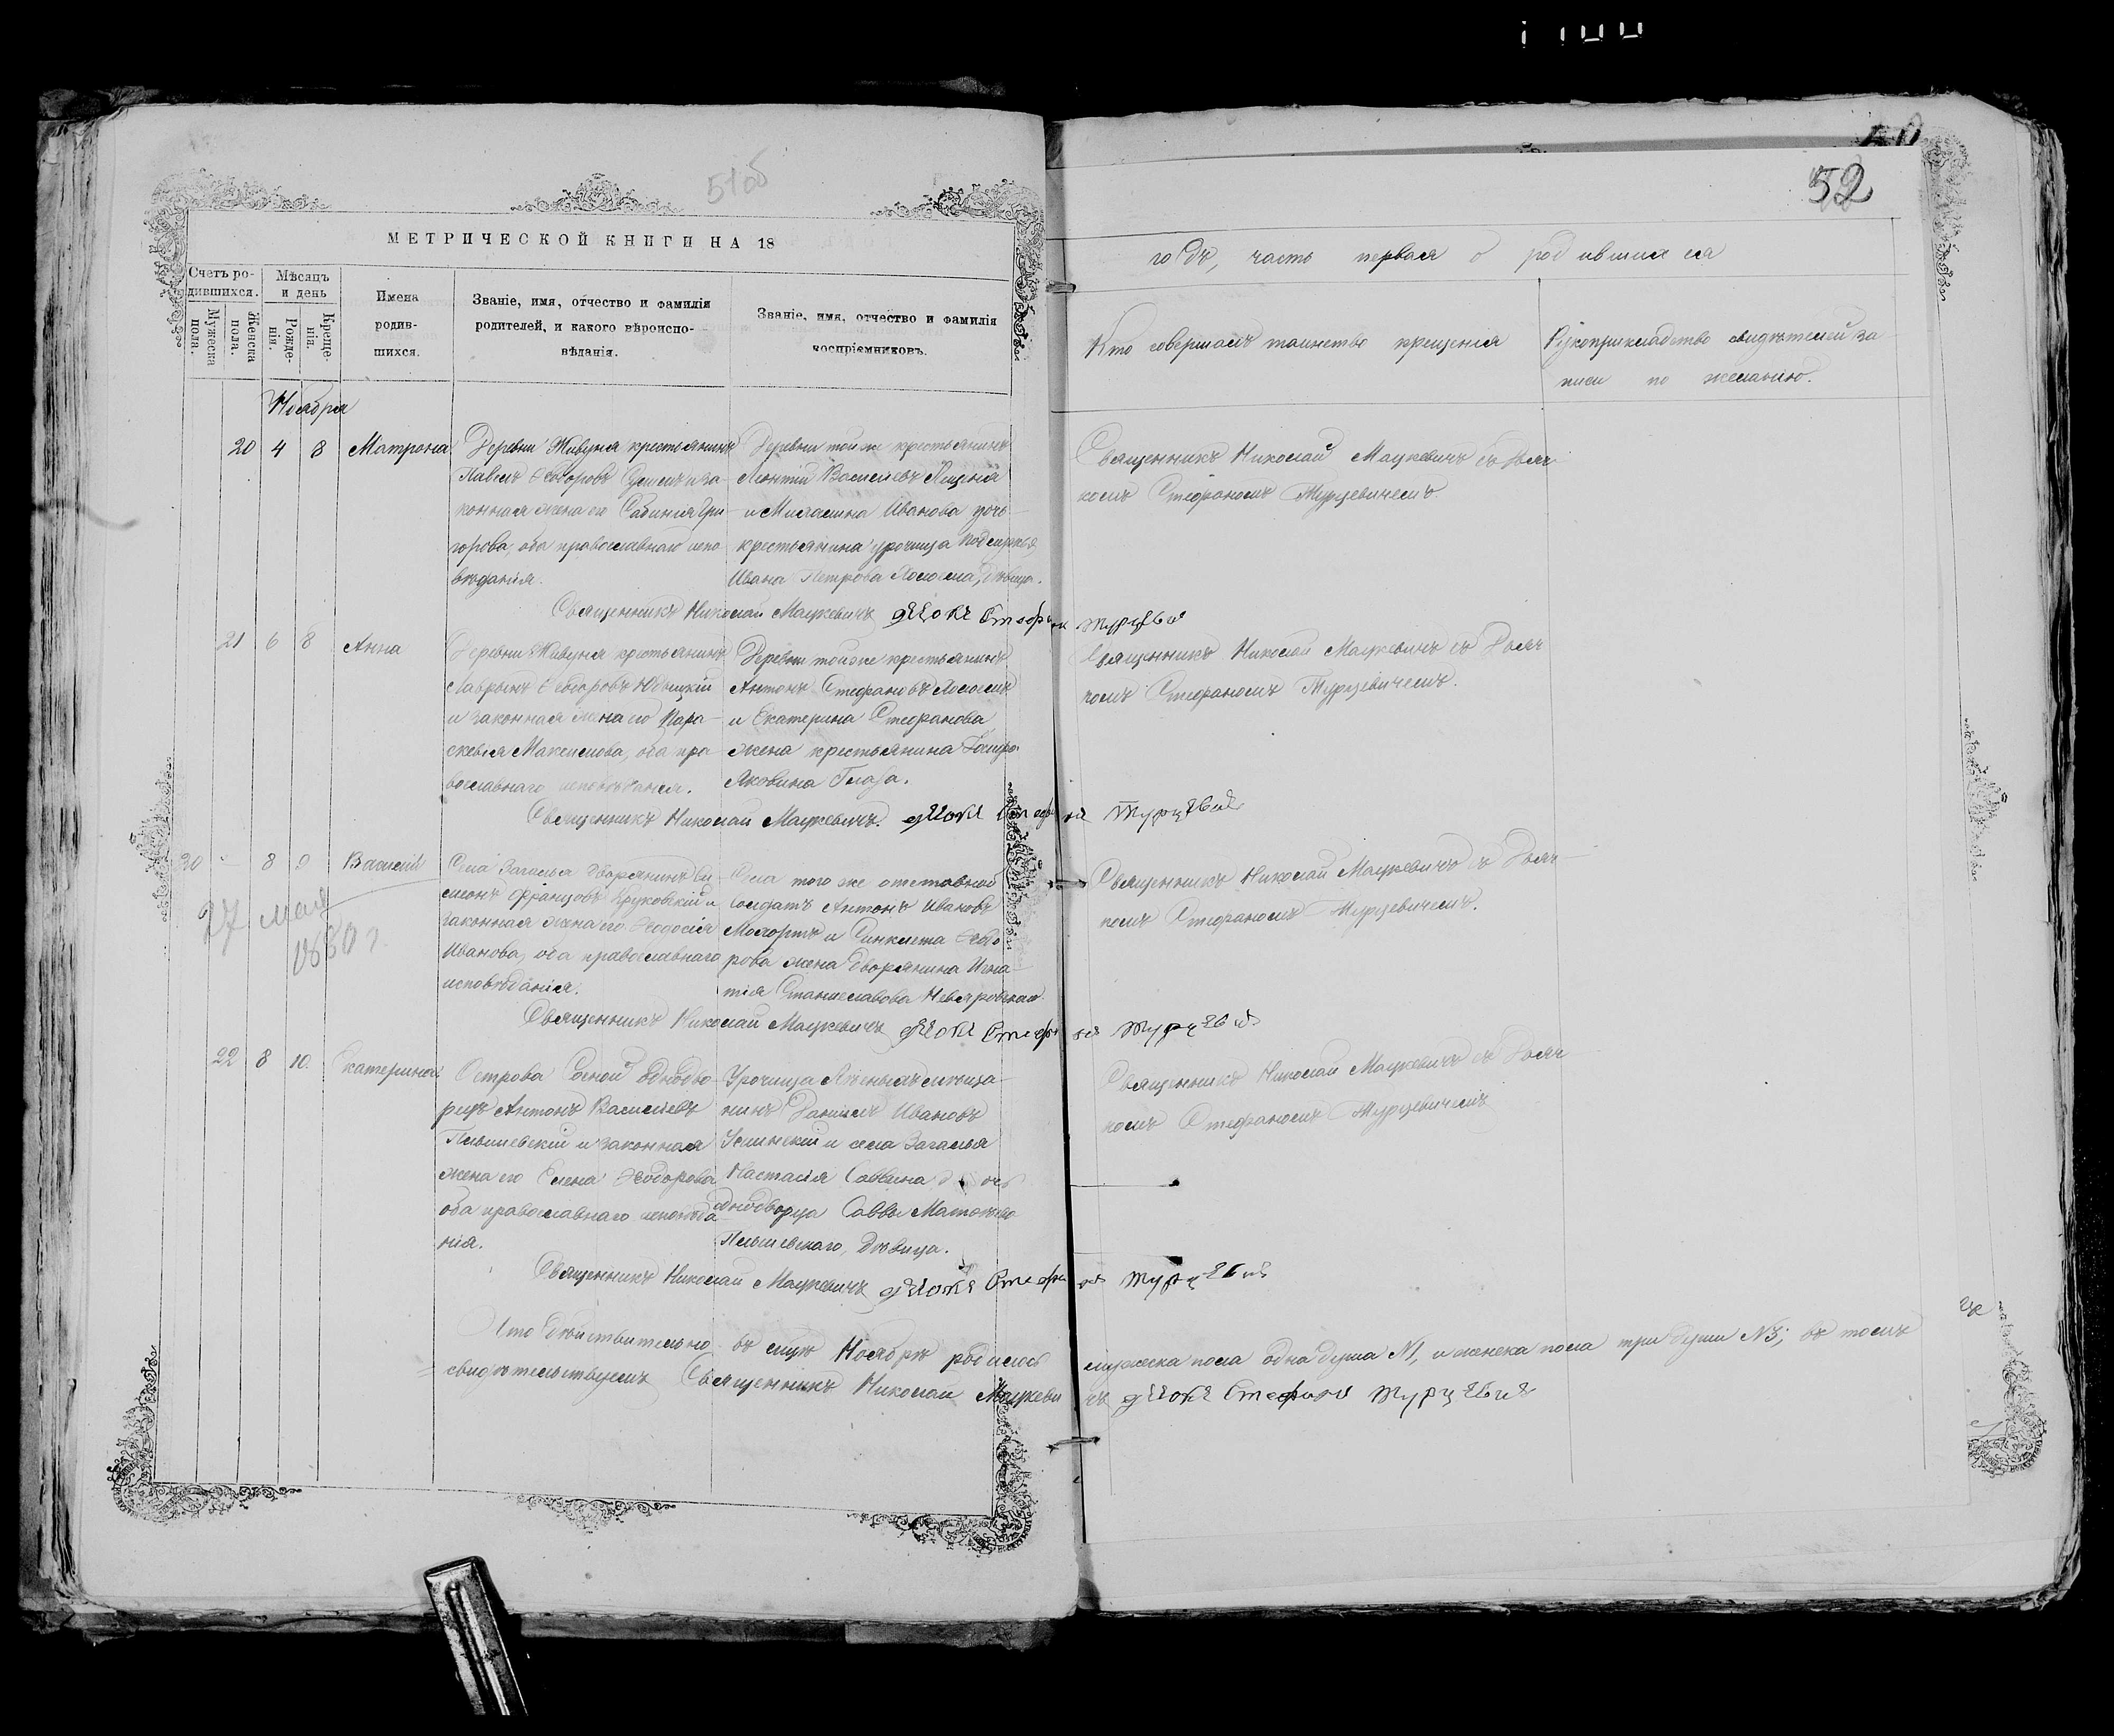 51об
52
МЕТРИЧЕСКОЙ КНИГИ НА 18
годъ, часть первая о родившихся
Счетъ ро-
дившихся.
Мѣсяцъ
и день
Мужеска
пола.
Женска
пола.
Рожде-
нія.
Креще-
нія.
Имена
родив-
шихся.
Званіе, имя, отчество и фамилія
родителей, и какого вѣроиспо-
вѣданія.
Званіе, имя, отчество и фамилія
воспріемниковъ.
Кто совершалъ таинство крещенія
Рукоприкладство свидѣтелей за-
писи по желанію.
Ноября
20 4 8 Матрона
Деревни Живуня крестьянинъ
Павелъ Ѳеодоровъ и за-
конная жена его Сабинія Гри-
горова, оба православнаго испо-
вѣданія.
Деревни той же крестьянинъ
Леонтій Васильевъ
и Иванова дочь
крестьянина урочища
Ивана Петрова дѣвица.
Священникъ Николай Мацкевичъ съ Дьяч-
комъ Стефаномъ Турцевичемъ
Священникъ Николай Мацкевичъ дячокъ Стефанъ Турцевичъ
21 6 8 Анна
Деревни Живуня крестьянинъ
Лаврынъ Ѳеодоровъ Юдыцкій
и законная жена его Пара-
скевія Максимова, оба пра-
вославнаго исповѣданія.
Деревни тойже крестьянинъ
Антонъ Стефановъ
и Екатерина Стефанова
жена крестьянина
Яковина Глаза.
Священникъ Николай Мацкевичъ съ Дьяч-
комъ Стефаномъ Турцевичемъ.
Священникъ Николай Мацкевичъ. дячокъ Стефанъ Турцевичъ
20 - 8 9 Василій
27 мая
1880 г.
Села Загалья дворянинъ Си-
меонъ Францовъ Круковскій и
законная жена его Ѳеодосія
Иванова, оба православнаго
исповѣданія.
Села того же отставной
солдатъ Антонъ Ивановъ
и Синклета Ѳеодо-
рова жена дворянина Игна-
тія Станиславова
Священникъ Николай Мацкевичъ съ Дьяч-
комъ Стефаномъ Турцевичемъ.
Священникъ Николай Мацкевичъ дячокъ Стефанъ Турцевичъ
22 8 10. Екатерина
Острова Сосной однодво-
рецъ Антонъ Васильевъ
и законная
жена его Елена Ѳеодорова
оба православнаго исповѣда-
нія.
Урочища мѣща-
нинъ Даніилъ Ивановъ
и села Загалья
Настасія Саввина дочь
однодворца Саввы
дѣвица.
Священникъ Николай Мацкевичъ съ Дьяч-
комъ Стефаномъ Турцевичемъ
Священникъ Николай Мацкевичъ дячокъ Стефанъ Турцевичъ
Что дѣйствительно въ сему Ноябрѣ родилось мужеска пола одна душа №1, и женска пола три души №3; въ томъ
свидѣтельствуемъ Священникъ Николай Мацкевичъ дячокъ Стефанъ Турцевичъ